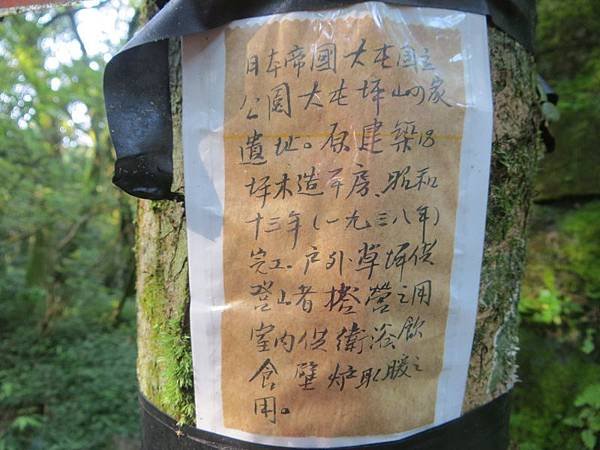 日本帝國大屯国立
公園大屯坪山の家
遺址。原建築18
坪木造平房、昭和
十三年(一九三八年)
完工。户外草坪供
登山者搭營之用
室内供衛浴飲
食 壁炉取暖之
用。